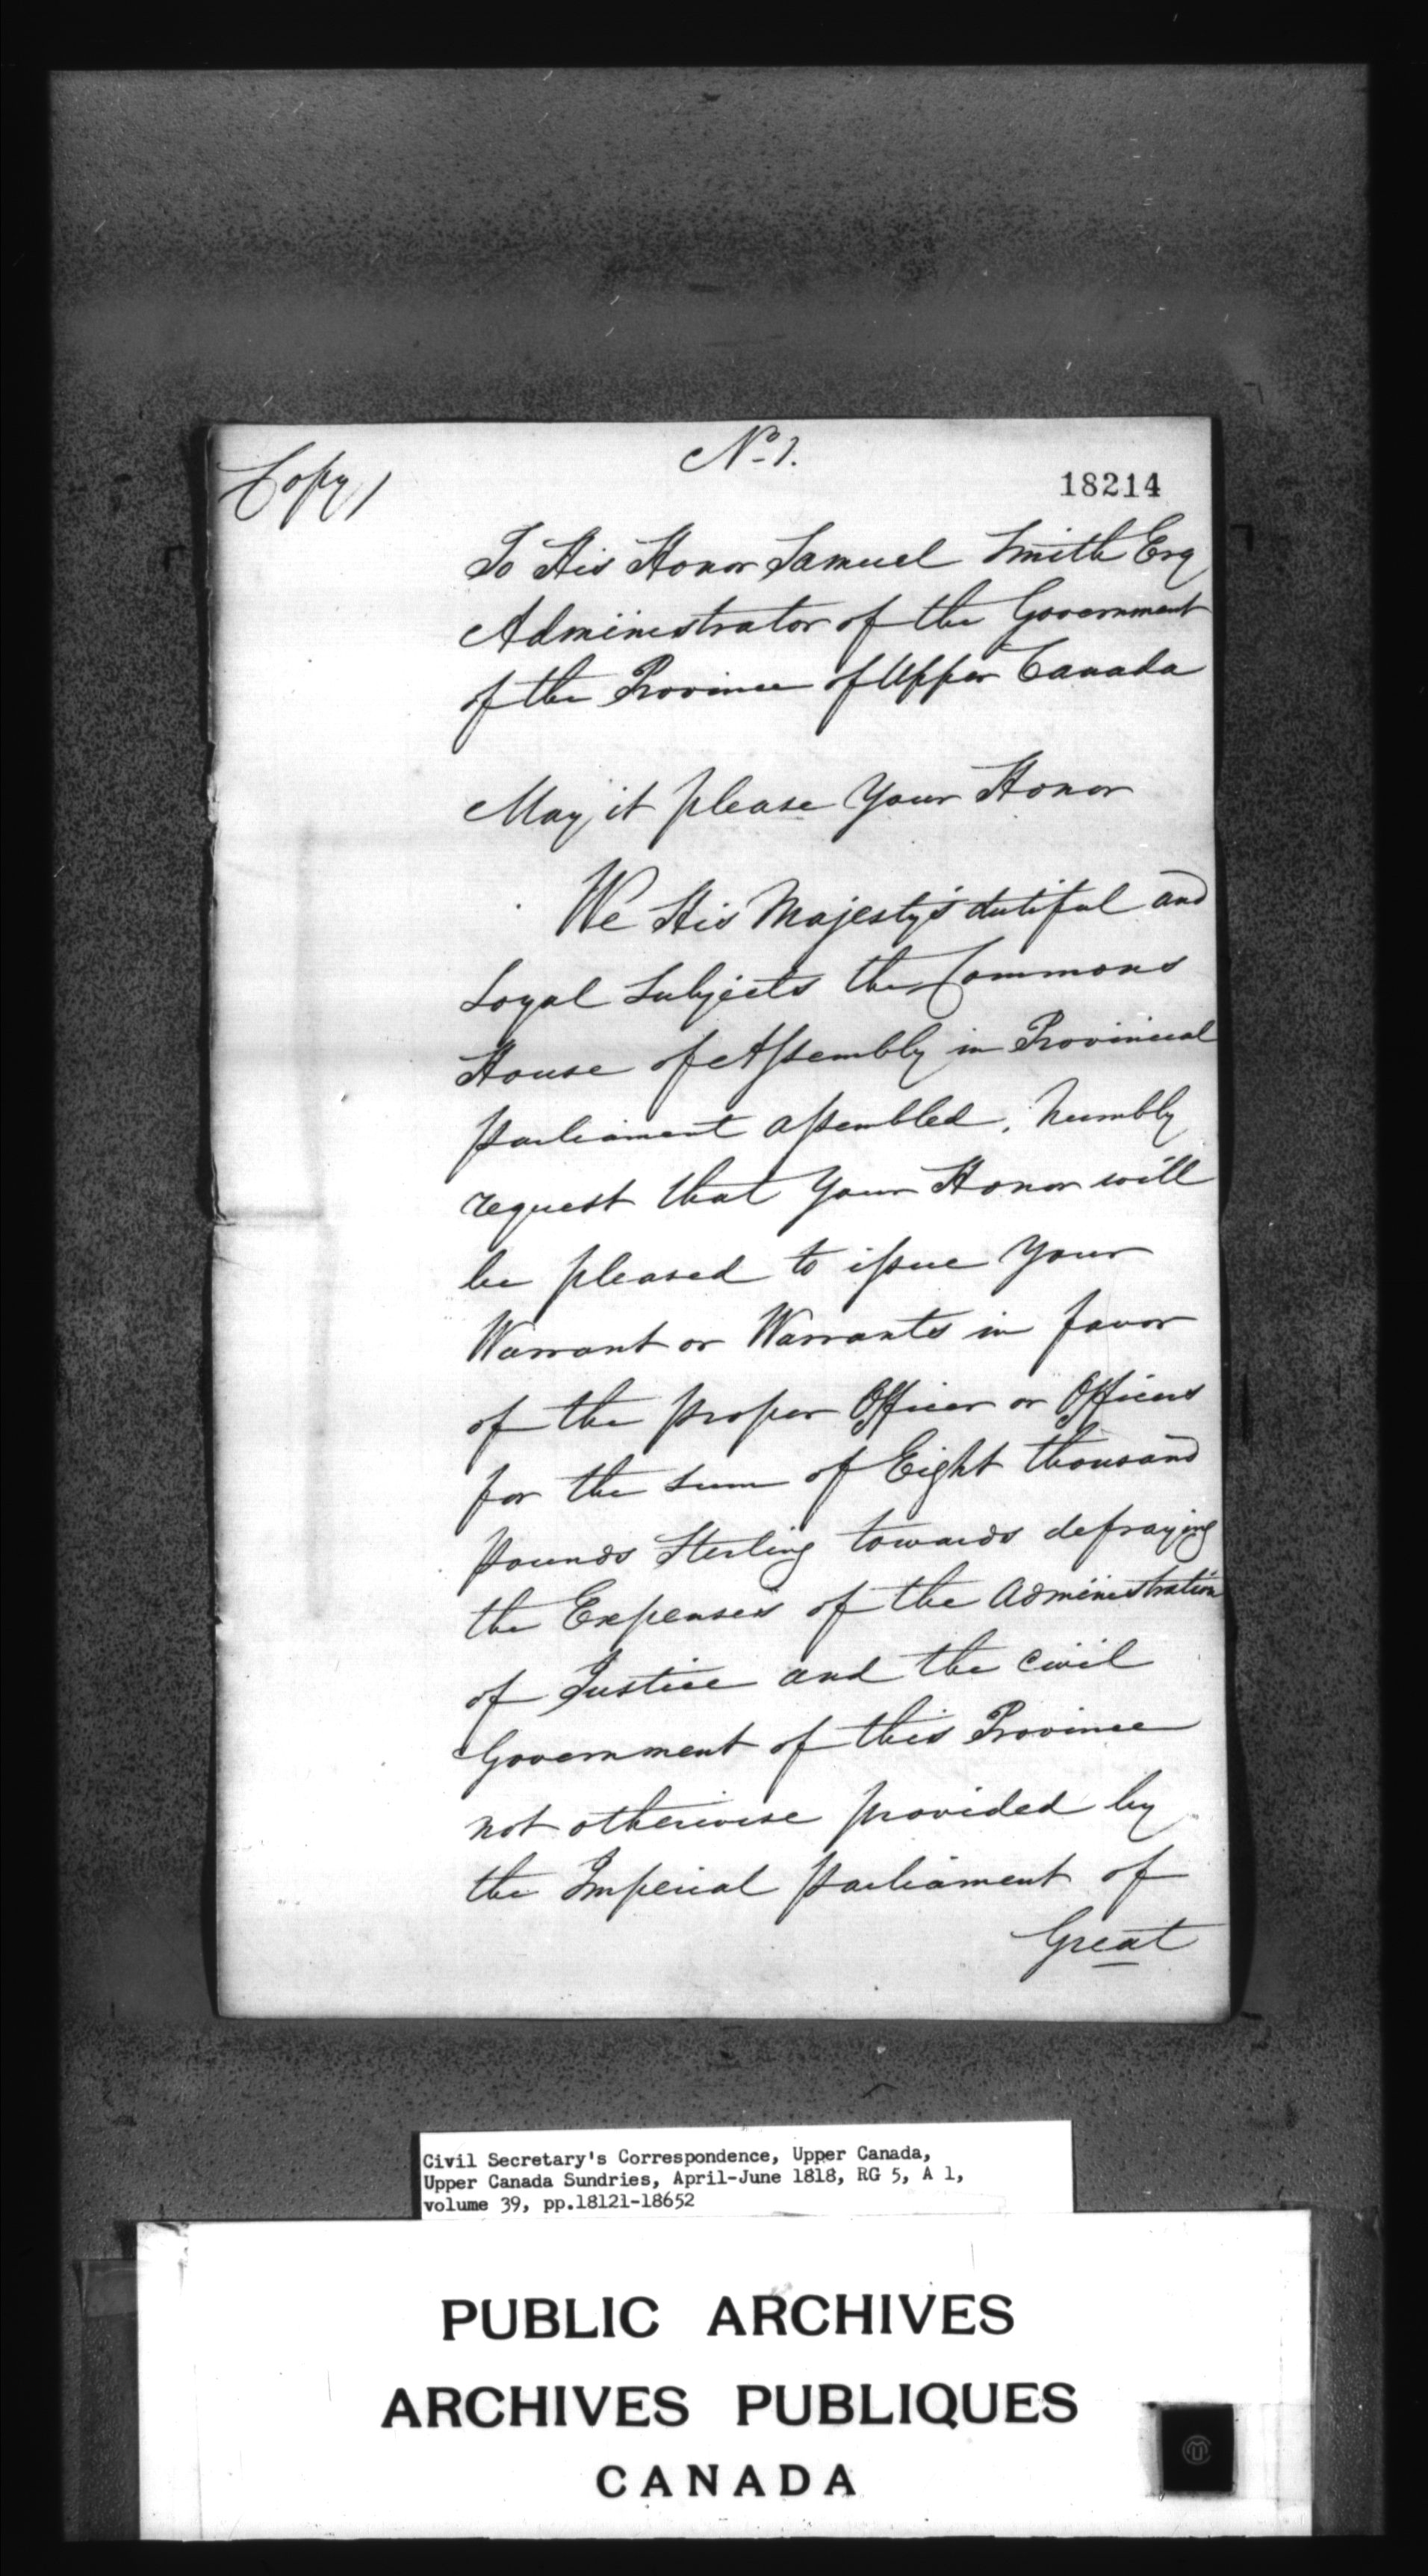 Copy/
No 1.
18214
To His Honor Samuel Smith Esq
Administrator of the Government
of the Province of Upper Canada
May it please Your Honor
We His Majesty's dutiful and
Loyal Subjects the Commons
House of Assembly in Provincial
Parliament assembled, humbly
request that Your Honor will
be pleased to issue Your
Warrant or Warrants in favor
of the proper Officer or Officers
for the sum of Eight thousand
Pounds Sterling towards defraying
the Expenses of the Administration
of Justice and the Civil
Government of this Province
not otherwise provided by
the Imperial Parliament of
Great
Civil Secretary's Correspondence, Upper Canada,
Upper Canada Sundries, April-June 1818, RG 5, A 1,
volume 39, pp.18121-18652
PUBLIC ARCHIVES
ARCHIVES PUBLIQUES
CANADA